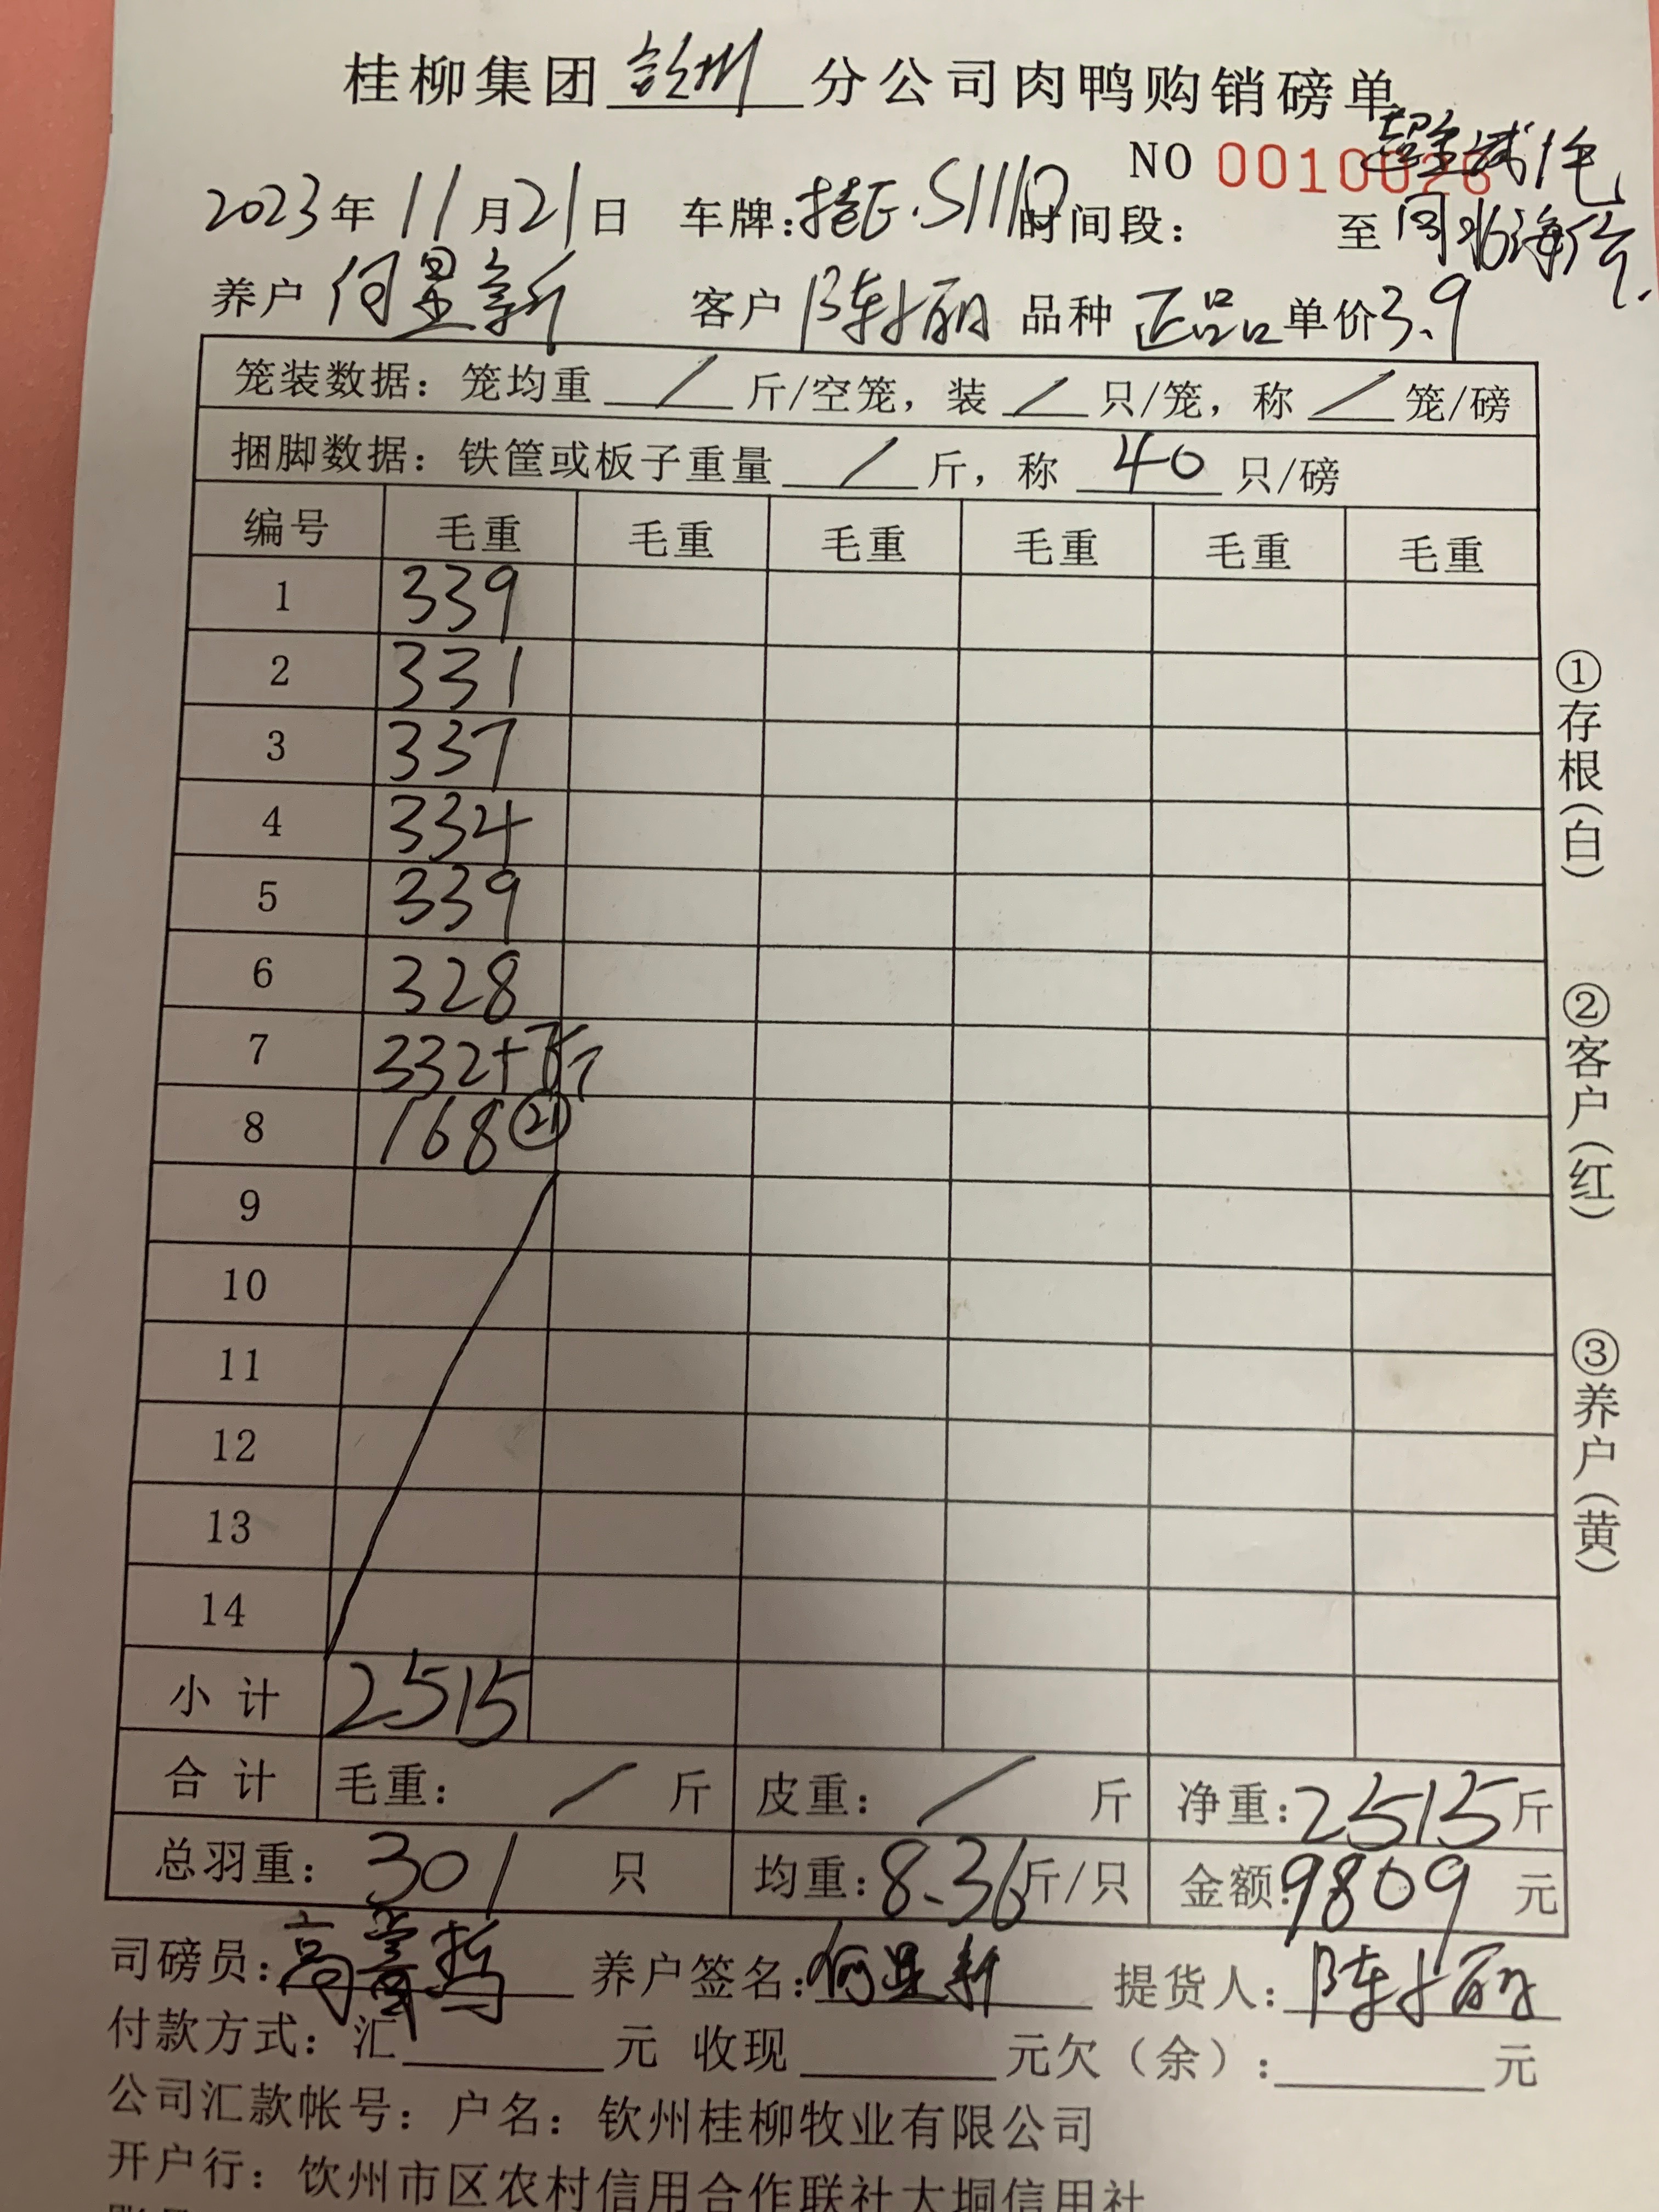 桂柳集团钦州分公司肉鸭购销磅单
NO 0010026
2023年11月21日 车牌: S1110 时间段: 至
养户 何显新 客户 陈小丽 品种 正品 单价3.9
笼装数据: 笼均重 / 斤/空笼, 装 / 只/笼, 称 / 笼/磅
捆脚数据: 铁筐或板子重量 / 斤, 称 40 只/磅
编号 毛重 毛重 毛重 毛重 毛重 毛重
1 339
2 331
3 337
4 334
5 339
6 328
7 332+7斤
8 168 ㉑
9
10
11
12
13
14
小计 2515
合计 毛重: / 斤 皮重: / 斤 净重: 2515斤
总羽重: 301 只 均重: 8.36斤/只 金额: 9809 元
①存根(白)
②客户(红)
③养户(黄)
司磅员: 养户签名: 何显新 提货人: 陈小丽
付款方式: 汇 元 收现 元欠(余): 元
公司汇款帐号: 户名: 钦州桂柳牧业有限公司
开户行: 钦州市区农村信用合作联社大垌信用社